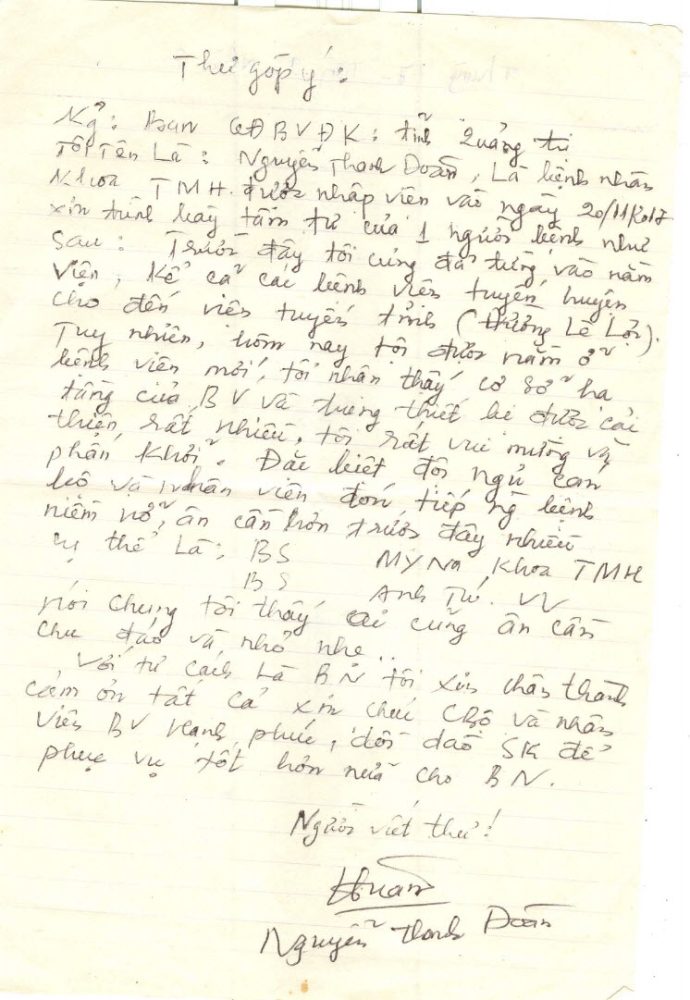 Thư góp ý:
Kg: Ban GĐBVĐK: tỉnh Quảng trị
Tôi Tên Là: Nguyễn Thanh Đoàn, Là bệnh nhân
Khoa TMH. được nhập viện vào ngày 20/11/2017
xin trình bày tâm tư của 1 người bệnh như
sau: Trước đây tôi cũng đã từng vào nằm
viện, kể cả các bệnh viện tuyến huyện
cho đến viện tuyến tỉnh (đường Lê Lợi).
Tuy nhiên, hôm nay tôi được nằm ở
bệnh viện mới, tôi nhận thấy cơ sở hạ
tầng của BV và trang thiết bị được cải
thiện rất nhiều, tôi rất vui mừng và
phấn khởi. Đặc biệt đội ngũ cán
bộ và nhân viên đón tiếp ng bệnh
niềm nở, ân cần hơn trước đây nhiều
cụ thể Là: BS My Na Khoa TMH
BS Anh Tú. VV
nói chung tôi thấy ai cũng ân cần
chu đáo và nhỏ nhẹ...
Với tư cách Là BN tôi xin chân thành
cảm ơn tất cả xin chúc CBộ và nhân
viên BV hạnh phúc, dồi dào SK để
phục vụ tốt hơn nữa cho BN.
Người viết thư!
Nguyễn Thanh Đoàn